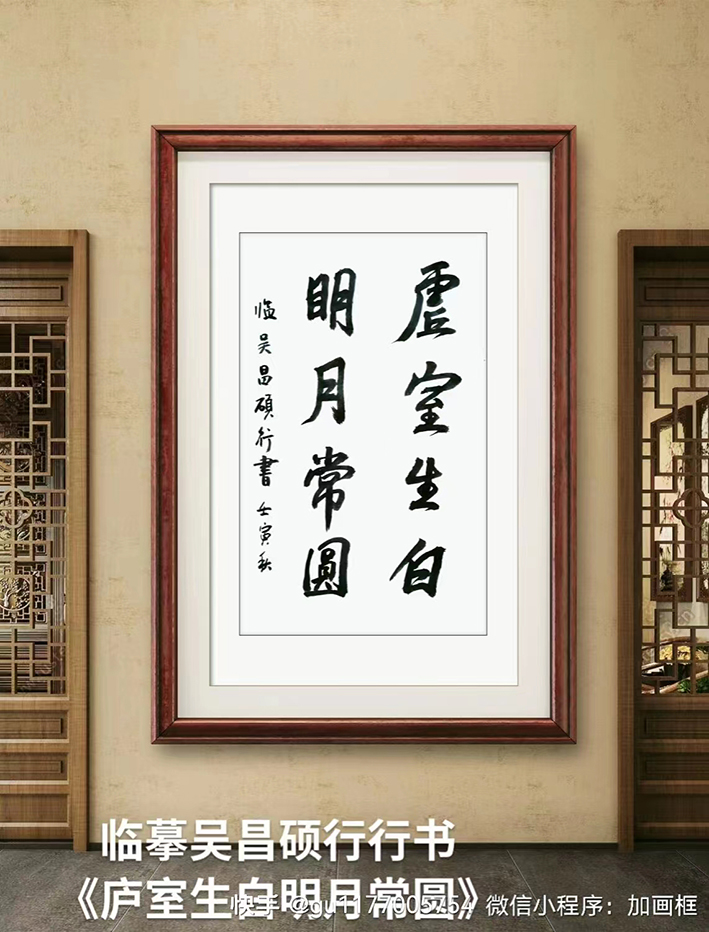 虚室生白
明月常圓
临吴昌碩行書 壬寅秋
临摹吴昌硕行行书
《庐室生白明月常圆》
快手 @gu1177005754 微信小程序：加画框